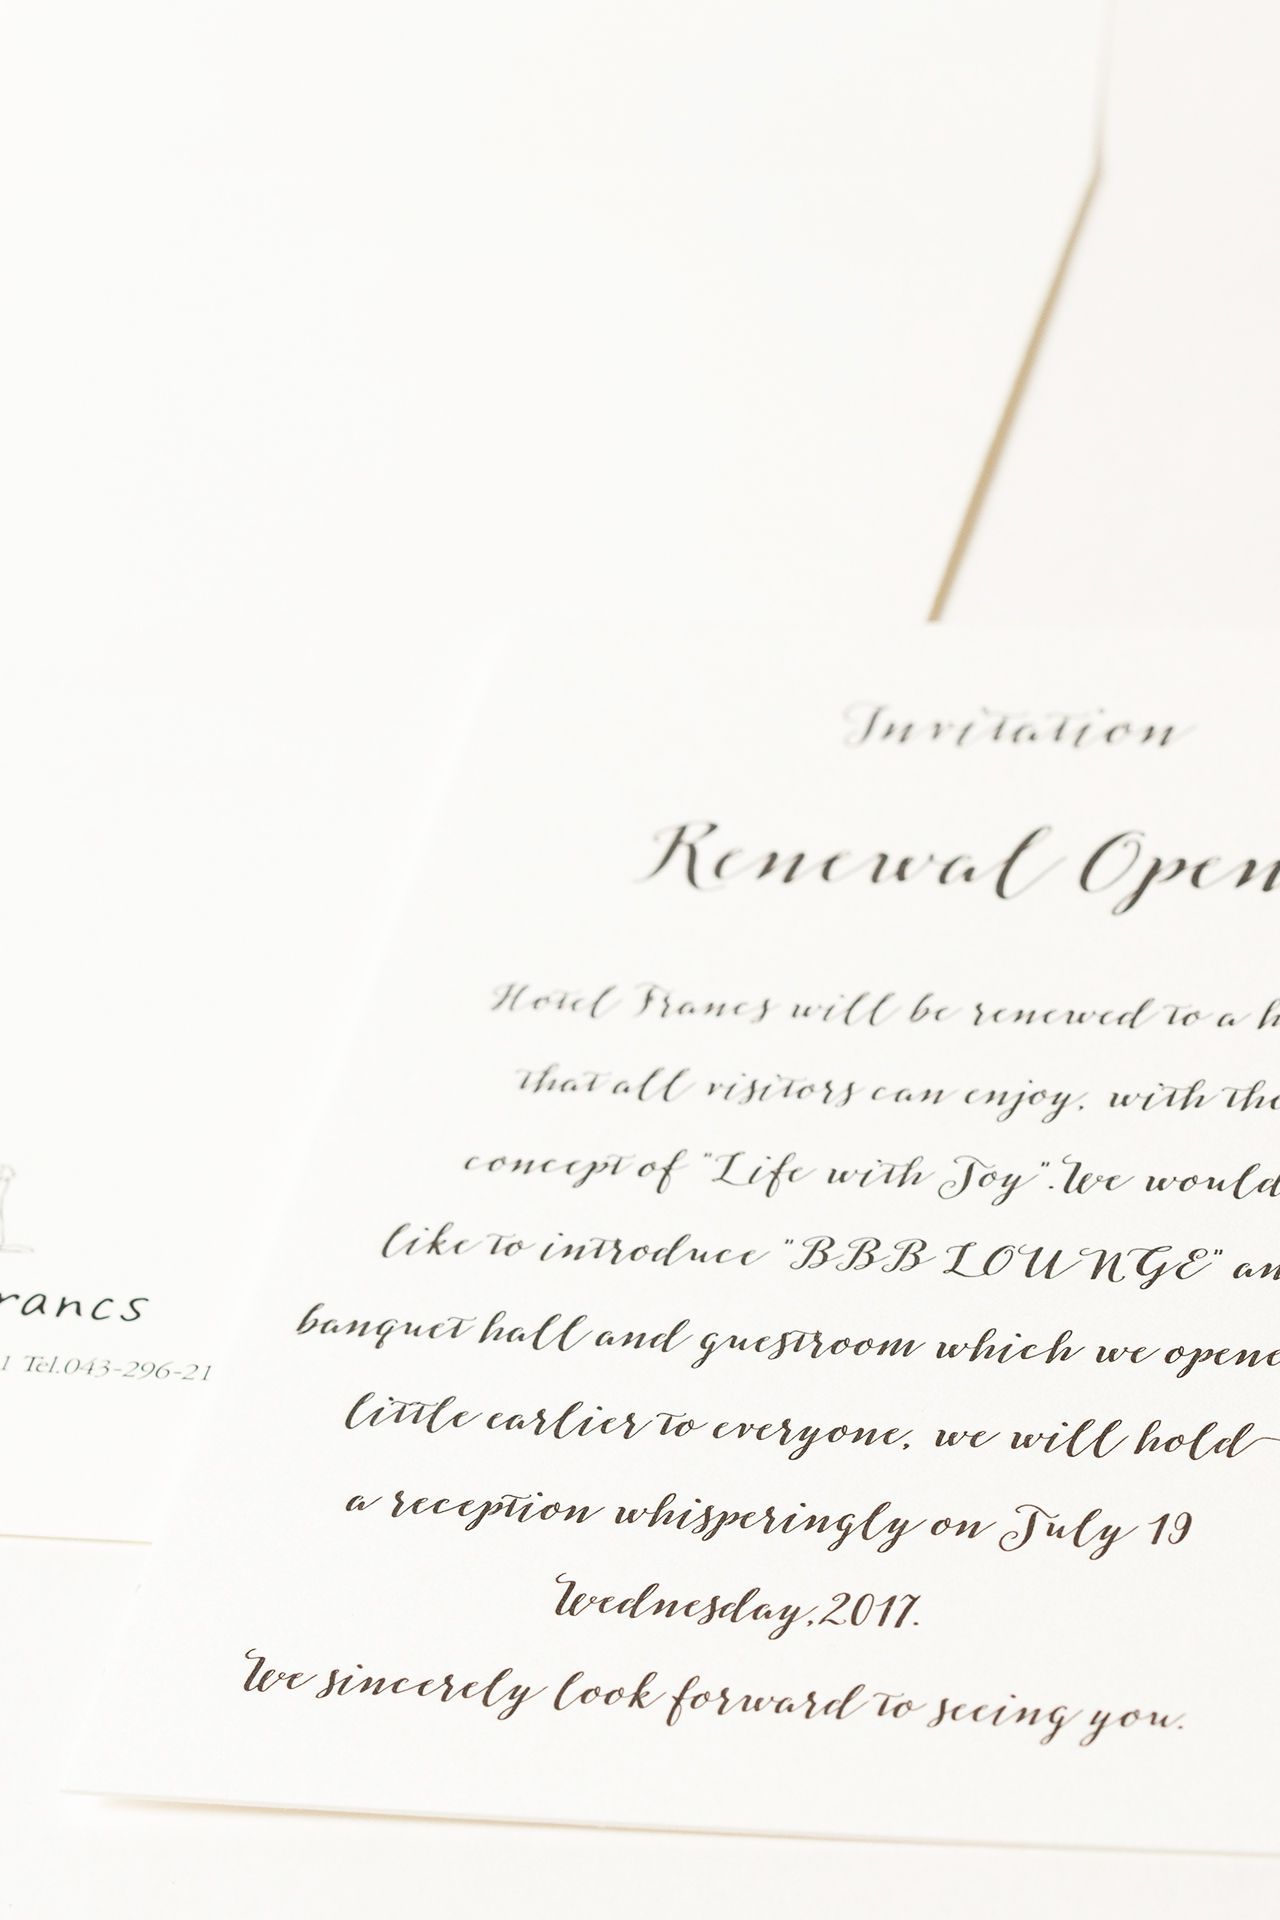 Invitation
Renewal Open
Hotel Francs will be renewed to a h
that all visitors can enjoy, with the
concept of "Life with Joy". We would
like to introduce "BBB LOUNGE" an
banquet hall and guestroom which we opene
little earlier to everyone, we will hold
a reception whisperingly on July 19
Wednesday, 2017.
We sincerely look forward to seeing you.
rancs
1 Tel.043-296-21